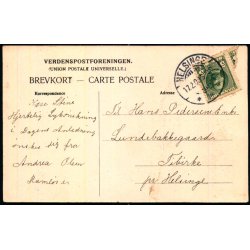 VERDENSPOSTFORENINGEN.
(UNION POSTALE UNIVERSELLE.)
BREVKORT – CARTE POSTALE
Korrespondance
Adresse
HELSINGE
Kære Stine
Hjertelig Lykønskning
i Dagens Anledning
ønskes dig fra
Andrea Olsen
Ramløse
Til Hans Pedersens
Lundebakkegaard
Tibirke
pr Helsinge